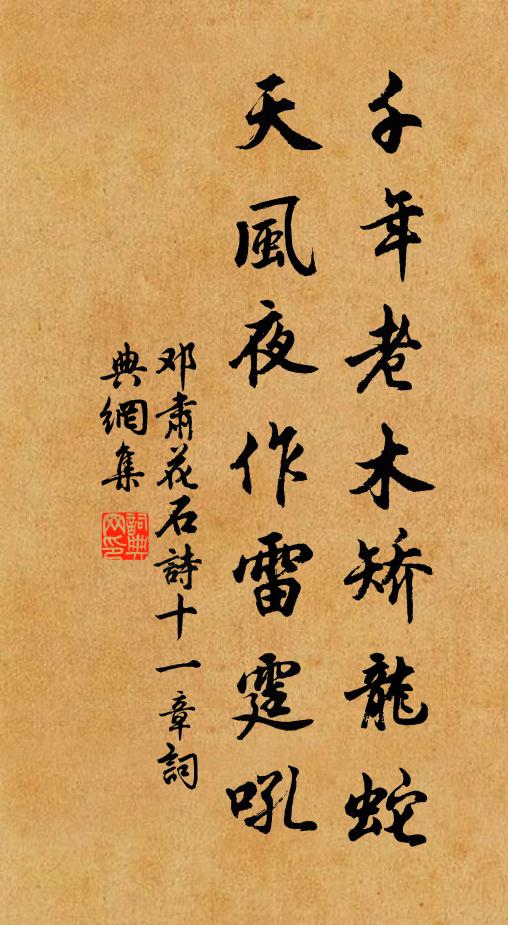 千年老木矯龍蛇
天風夜作雷霆吼
邓肅花石詩十一章詞
典網集
詞典網印